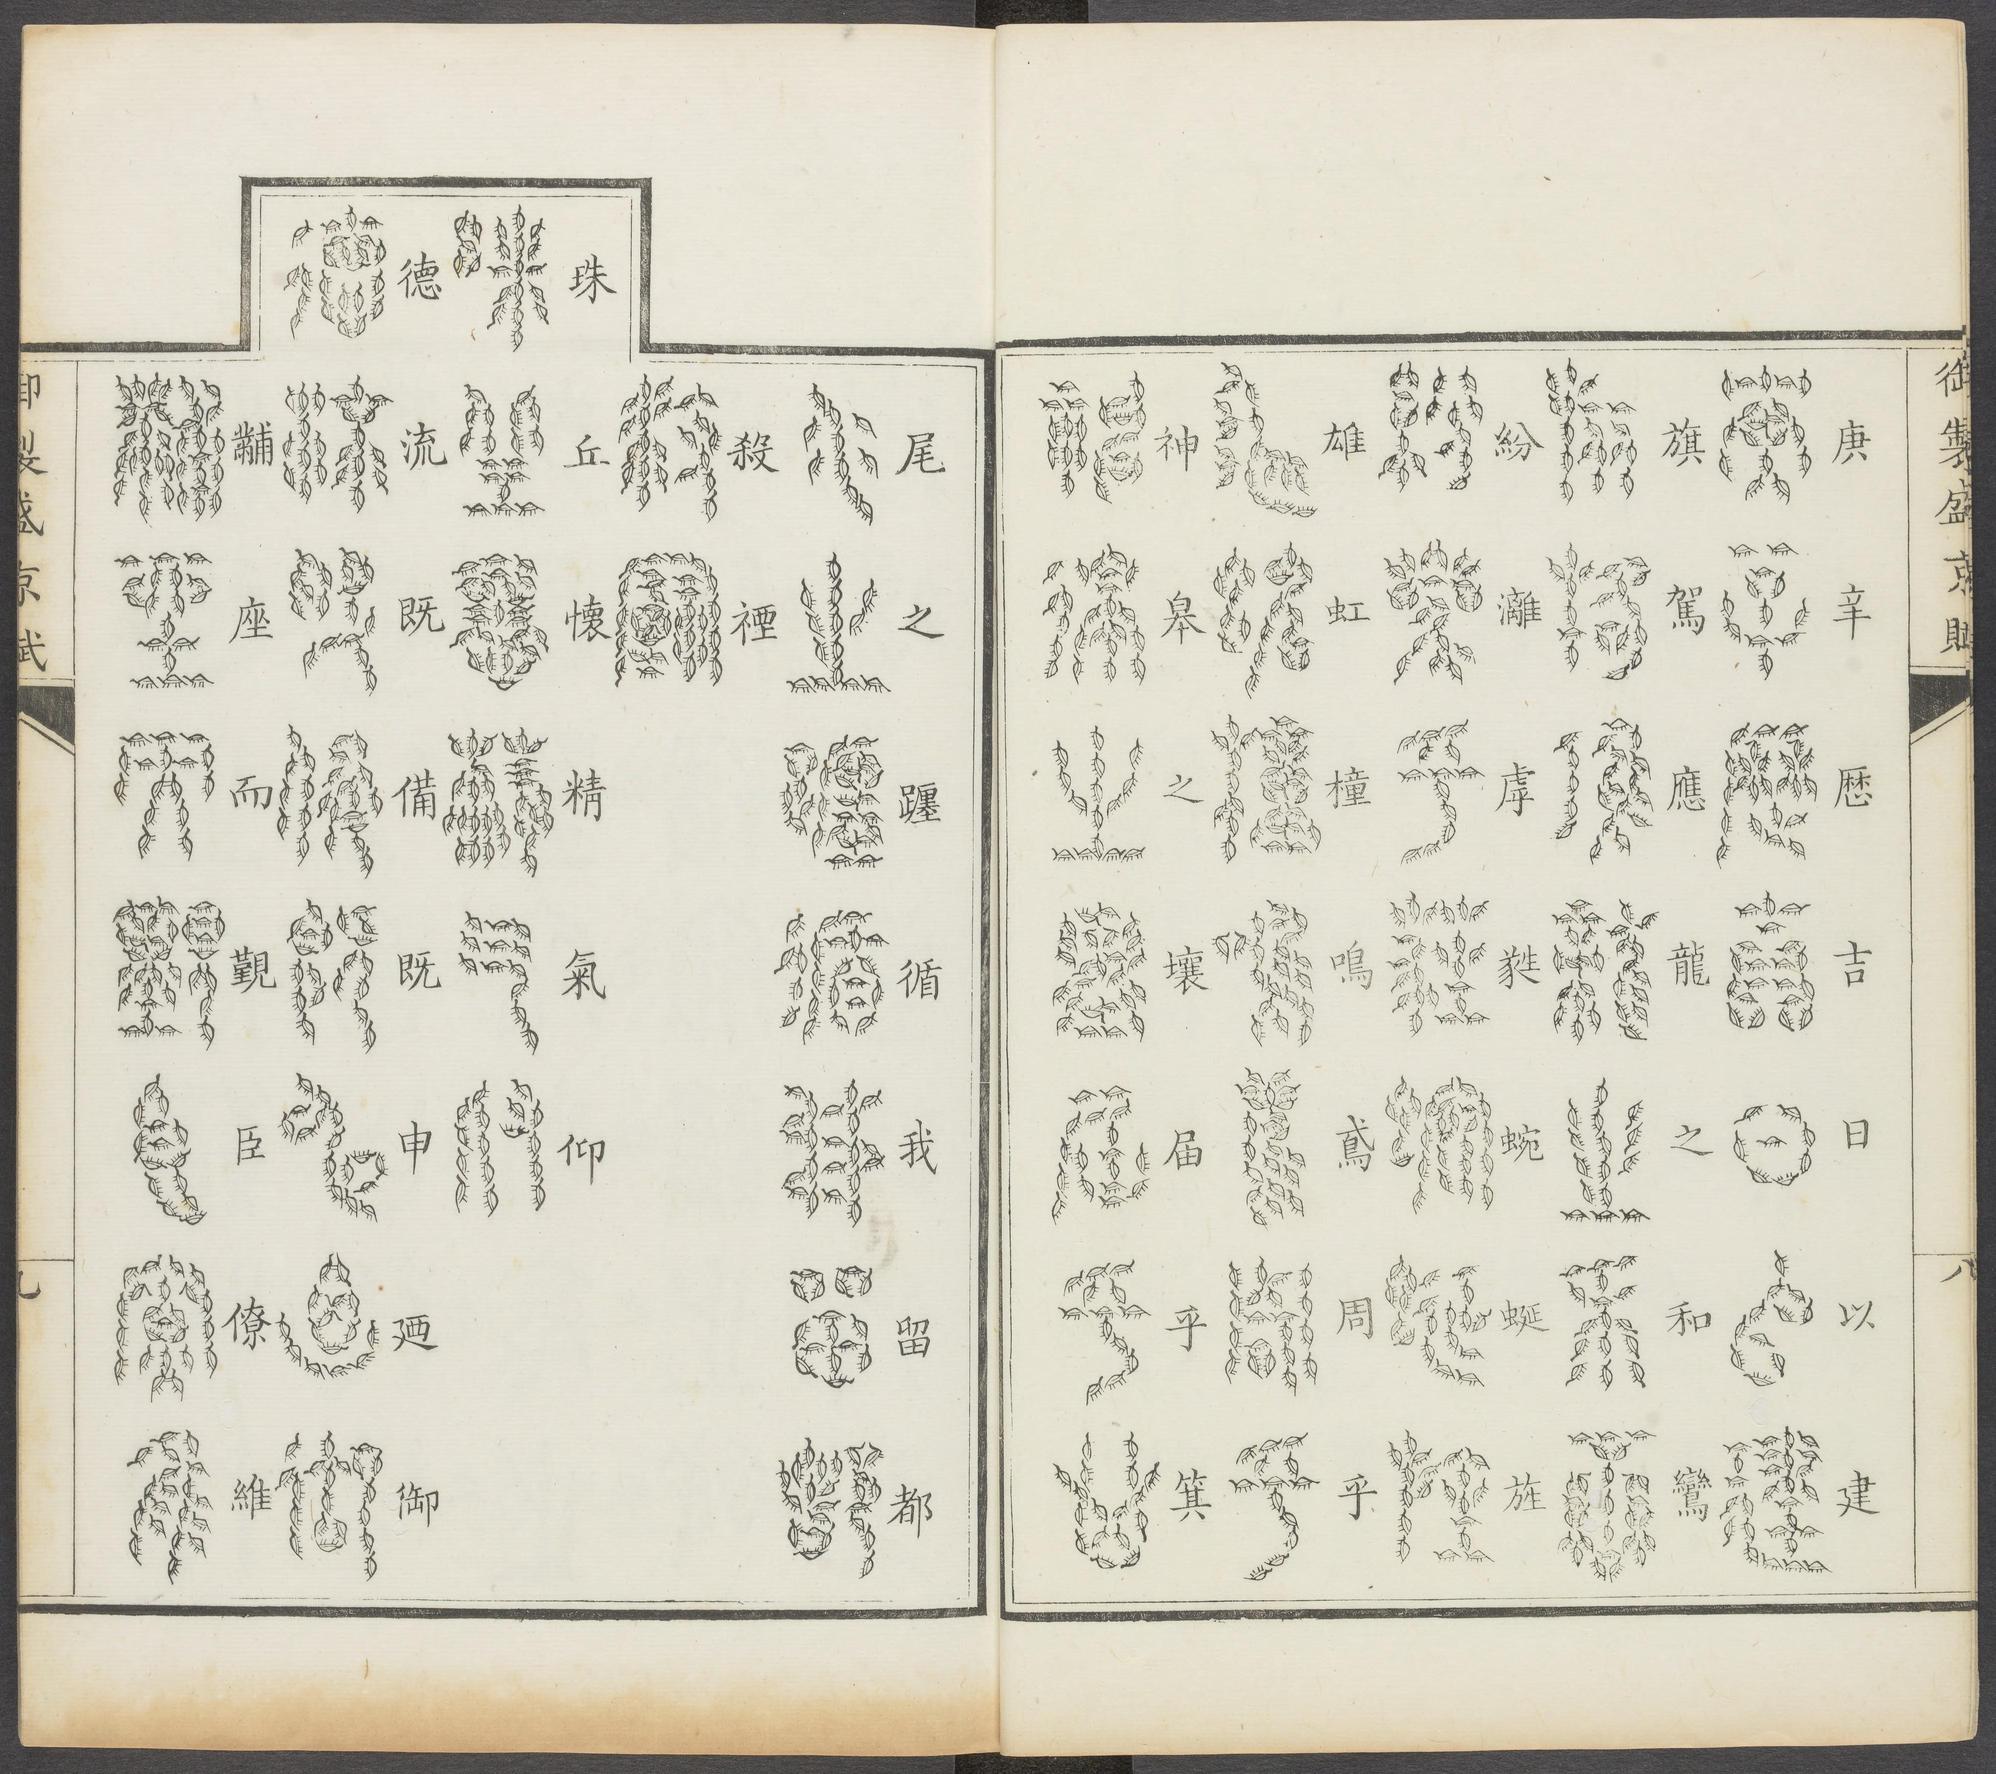 御製盛京賦
八
庚辛歷吉日以建
旗駕應龍之和鸞
紛灕虖蕤蜿蜒旌
雄虹橦鳴鳶周乎
神皋之壤届乎箕
尾之躔循我留都
殺禋
珠丘懷精氣仰
德流既備既申廼御
黼座而覲臣僚維
御製盛京賦
九